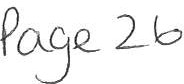 Page 26